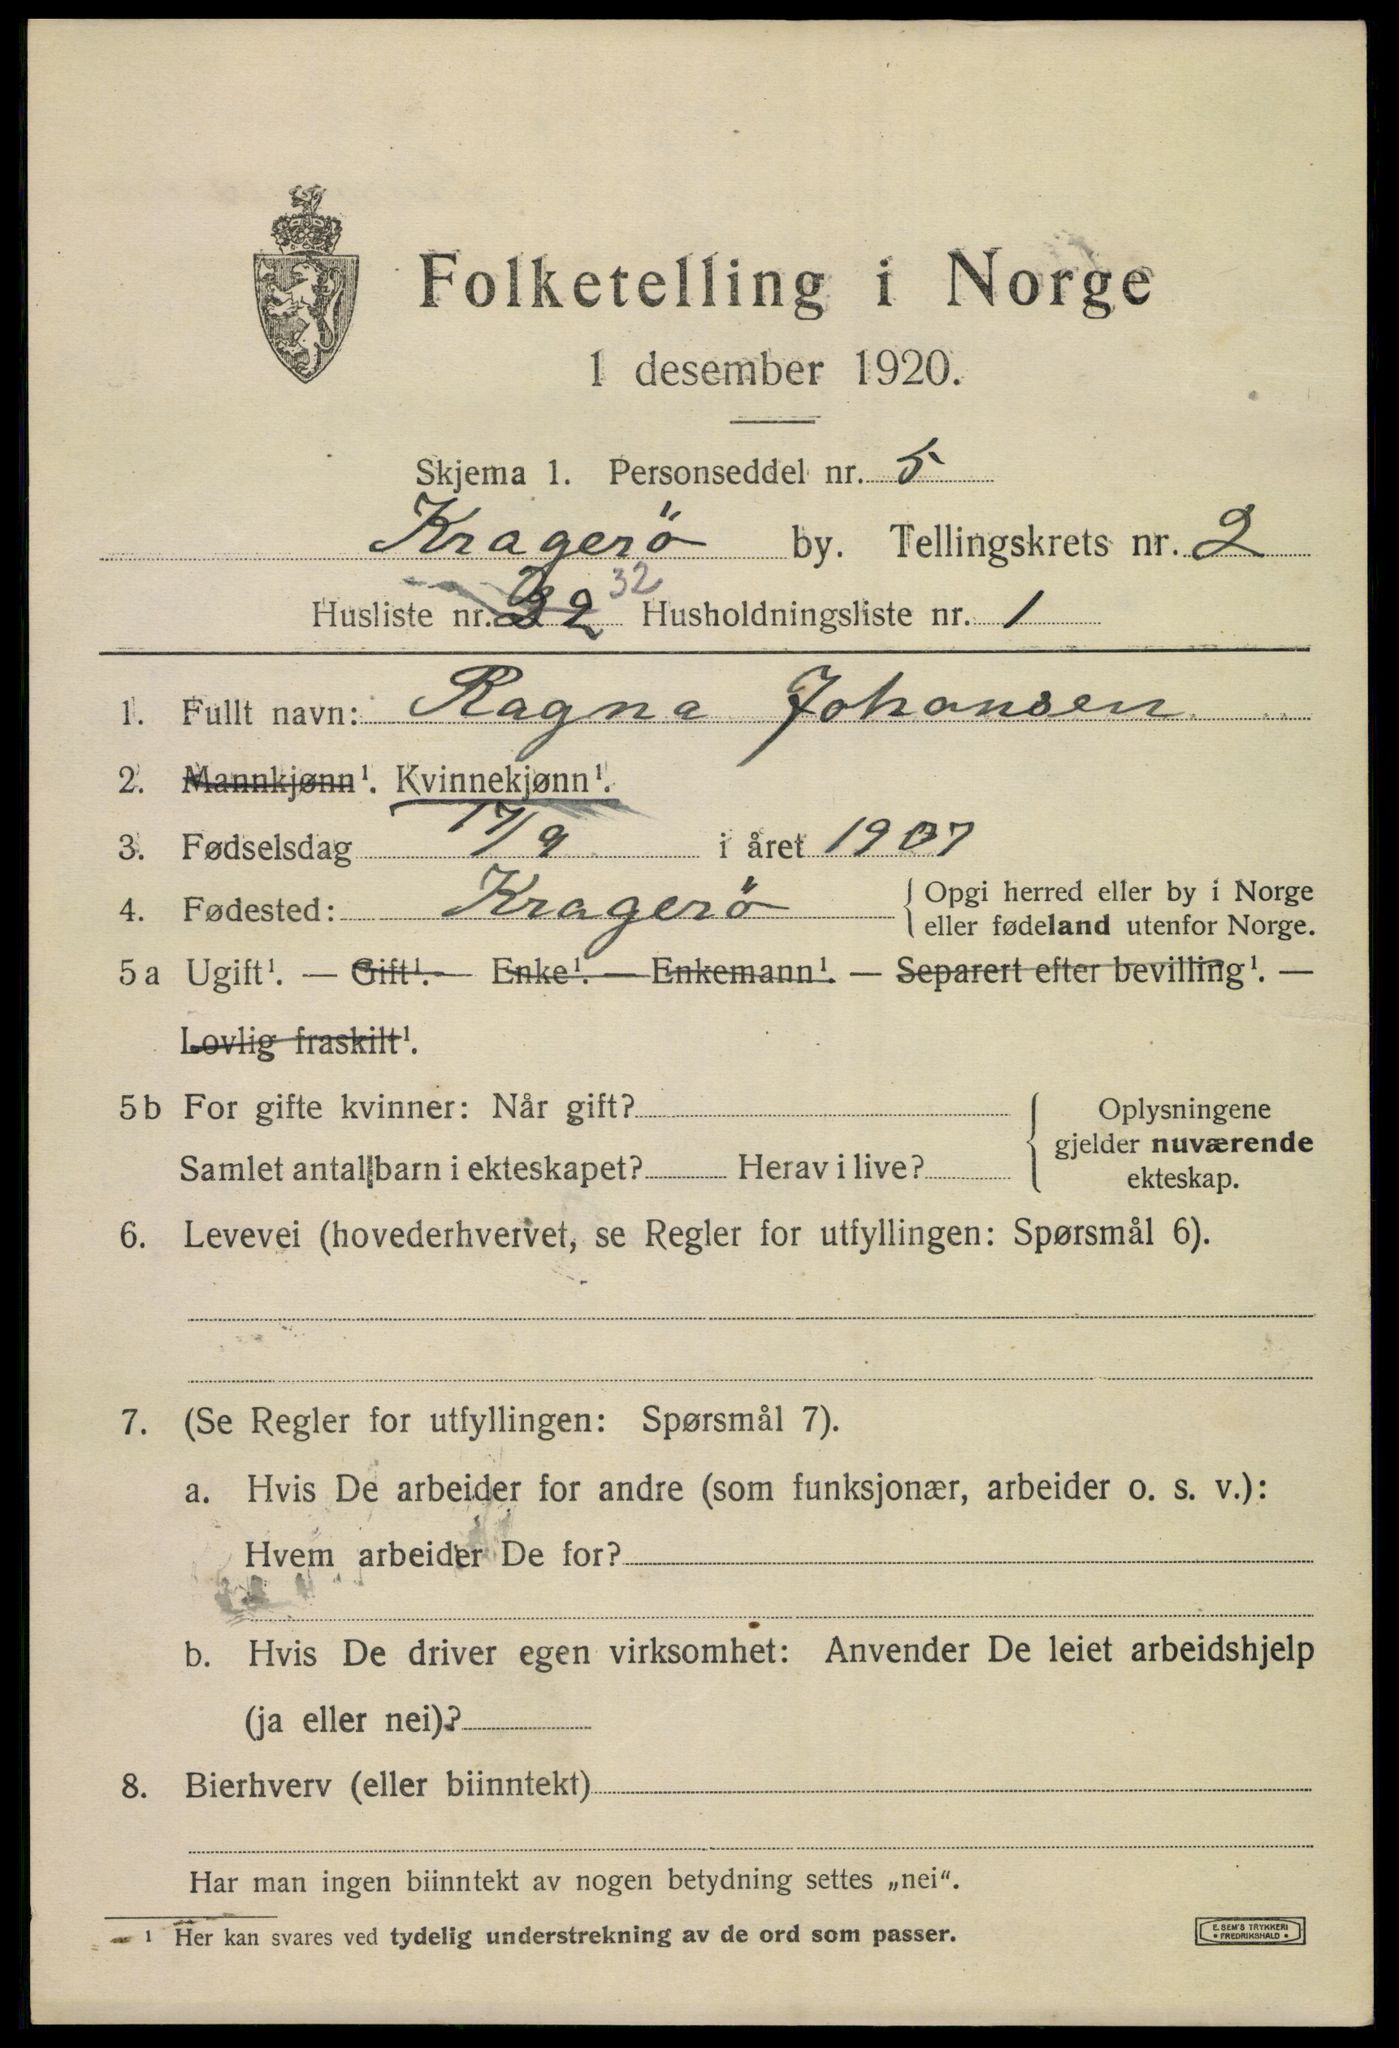 Folketelling i Norge
1 desember 1920.
Skjema 1. Personseddel nr. 5
Kragerö by. Tellingskrets nr. 2
32
Husliste nr. Husholdningsliste nr. 1
1. Fullt navn: Ragna Johansen
2. Mannkjønn¹. Kvinnekjønn¹.
3. Fødselsdag 17/9 i året 1907
4. Fødested: Kragerö { Opgi herred eller by i Norge
eller fødeland utenfor Norge.
5a Ugift¹. — Gift¹. — Enke¹. — Enkemann¹. — Separert efter bevilling¹. —
Lovlig fraskilt¹.
5b For gifte kvinner: Når gift? Oplysningene
gjelder nuværende
Samlet antal barn i ekteskapet? Herav i live? ekteskap.
6. Levevei (hovederhvervet, se Regler for utfyllingen: Spørsmål 6).
7. (Se Regler for utfyllingen: Spørsmål 7).
a. Hvis De arbeider for andre (som funksjonær, arbeider o. s. v.):
Hvem arbeider De for?
b. Hvis De driver egen virksomhet: Anvender De leiet arbeidshjelp
(ja eller nei)?
8. Bierhverv (eller biinntekt)
Har man ingen biinntekt av nogen betydning settes „nei“.
¹ Her kan svares ved tydelig understrekning av de ord som passer.
E. SEM'S TRYKKERI
• FREDRIKSHALD •